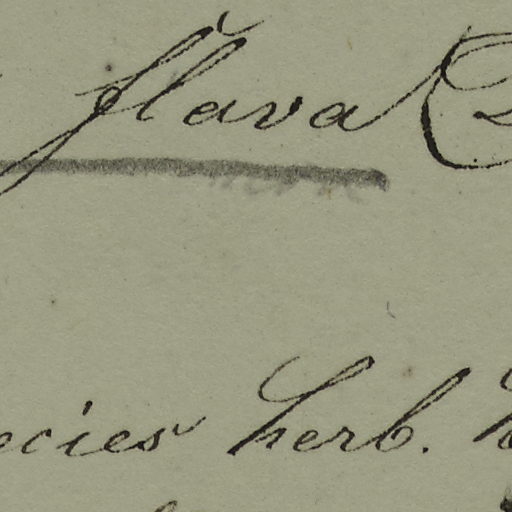 flava
ecies herb.